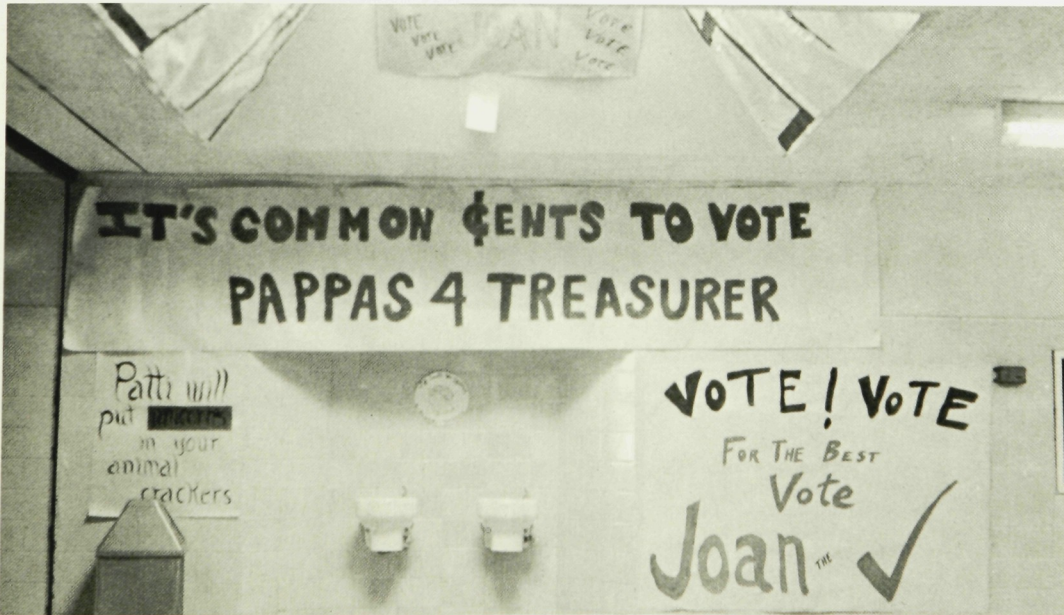 VOTE
Vote
Vote
Vote
Vote
Vote
IT'S COMMON ¢ENTS TO VOTE
PAPPAS 4 TREASURER
Patti will
put
in your
animal
crackers
VOTE! VOTE
FOR THE BEST
Vote
Joan THE ✓